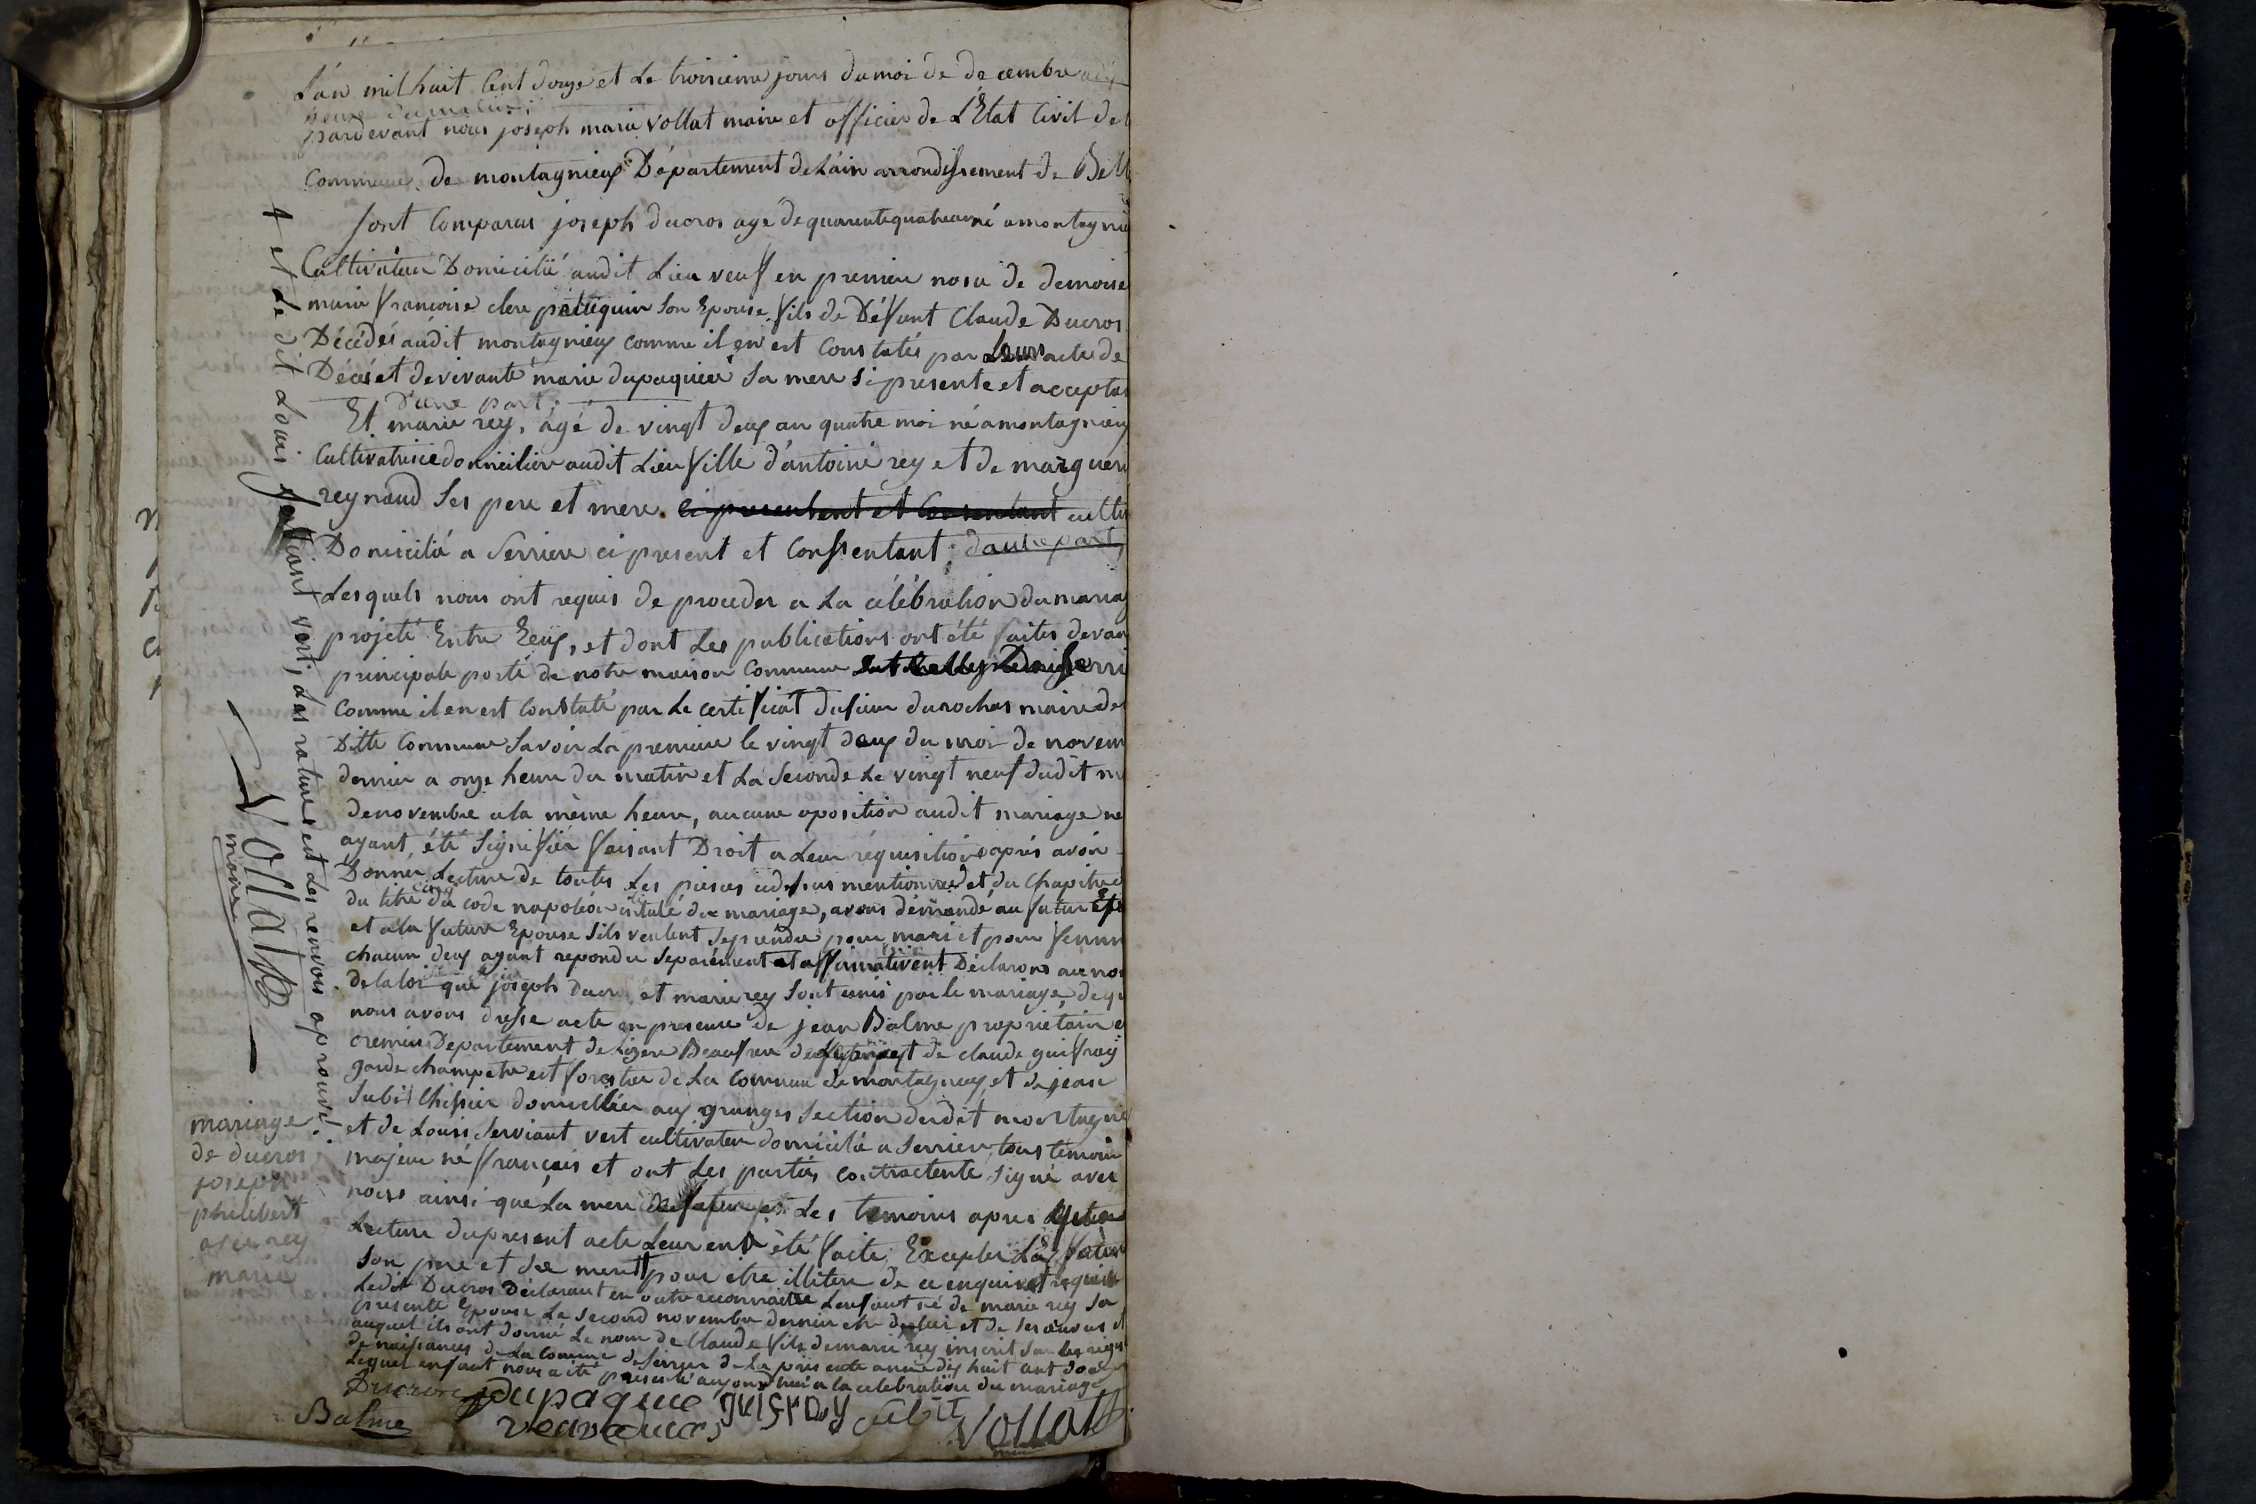 L'an mil huit Cent douze et le troisieme jours du moi de decembre a dix
heure du matin
pardevant nous joseph marie vollat maire et officier de L'Etat Civil de
Commune de montagnieux Département de L'ain arrondissement de Bell
sont Comparus joseph ducros agé de quarente quatre an né a montagnie
Cultivateur Domicilié audit Lieu veuf en premiere nosce de demoise
marie francoise clere peliequin son Epouse fils de Défunt Claude Ducros
Décédés audit montagnieux comme il en est Constatés par Leur acte de
Décés et de vivante marie dupaquier sa mere si presente et accepta
D'une part;
Et marie rey, agé de vingt deux an quatre moi né a montagnieux
Cultivatrice domicilier audit Lieu fille d'antoine rey et de marguer
reynaud ses pere et mere. ci presentent et Consentant culti
Domicilié a Serriere ci present et Conssentant; d'autre part,
Lesquels nous ont requis de proceder a La célébration du maria
projeté Entre Eeux, et dont Les publications ont été faites devan
principale porte de notre maison Commune
Comme il en est Constaté par Le certificat du sieur durochas maire de
Ditte Commune Savoir La premiere le vingt deux du moi de novem
dernier a onze heure du matin et La Seconde Le vingt neuf dudit m
de novembre a la même heure, aucune oposition audit mariage ne
ayant été Signifiér faisant Droit a Leur réquisition aprés avoir
Donner Lecture de toutes Les pieces cidessus mentionned et du Chapitre
du titre cinq du code napoléon intitulé du mariage, avons démandé au futur Epo
et a la future Epouse sils veulent se prendre pour mari et pour femm
chacun deux ayant repondu Separément et affirmativent Déclarons au no
de la loi que joseph Ducro et marie rey Sont unis par le mariage, de q
nous avons dresse acte en presence de jean Balme proprietaire
cremieu Departement de Lizere Beaufrere de et de claude guiffray
garde champetre est forestier de La Commune de montagneux, et de jean
Subit Chissier domicillier aux granges section dudit montagni
et de Louis serviant vert cultivateur domicilié a serriere, tous temoin
majeur né français et ont Les parties contractente signé avec
nous ainsi que La mere Les temoins apres
Lecture dupresent acte Leur en à été faite. Excepter La futur
son pere et sa mere pour être illiterre de ce enquis et requis
Ledit Ducros Déclarant en outre reconnaitre L'enfant né de marie rey sa
presente Epouse Le second novembre dernier être de lui et de ses œuvres et
auquel ils ont donné Le nom de Claude fils de marie rey inscrit sur les regis
de naissances de La Commune de serrier de La présente année dix huit cent douze
Lequel enfant nous a été presenté aujourd'hui a la celebration du mariage
Ducros dupaquié guifray subit Vollat
Balme veuve ducros maire
+ et Le dit Louis Serviant vert, Les ratures et Les renvois aprouvé.
Vollat
maire
mariage
de ducros
joseph
philibert
avec rey
marie